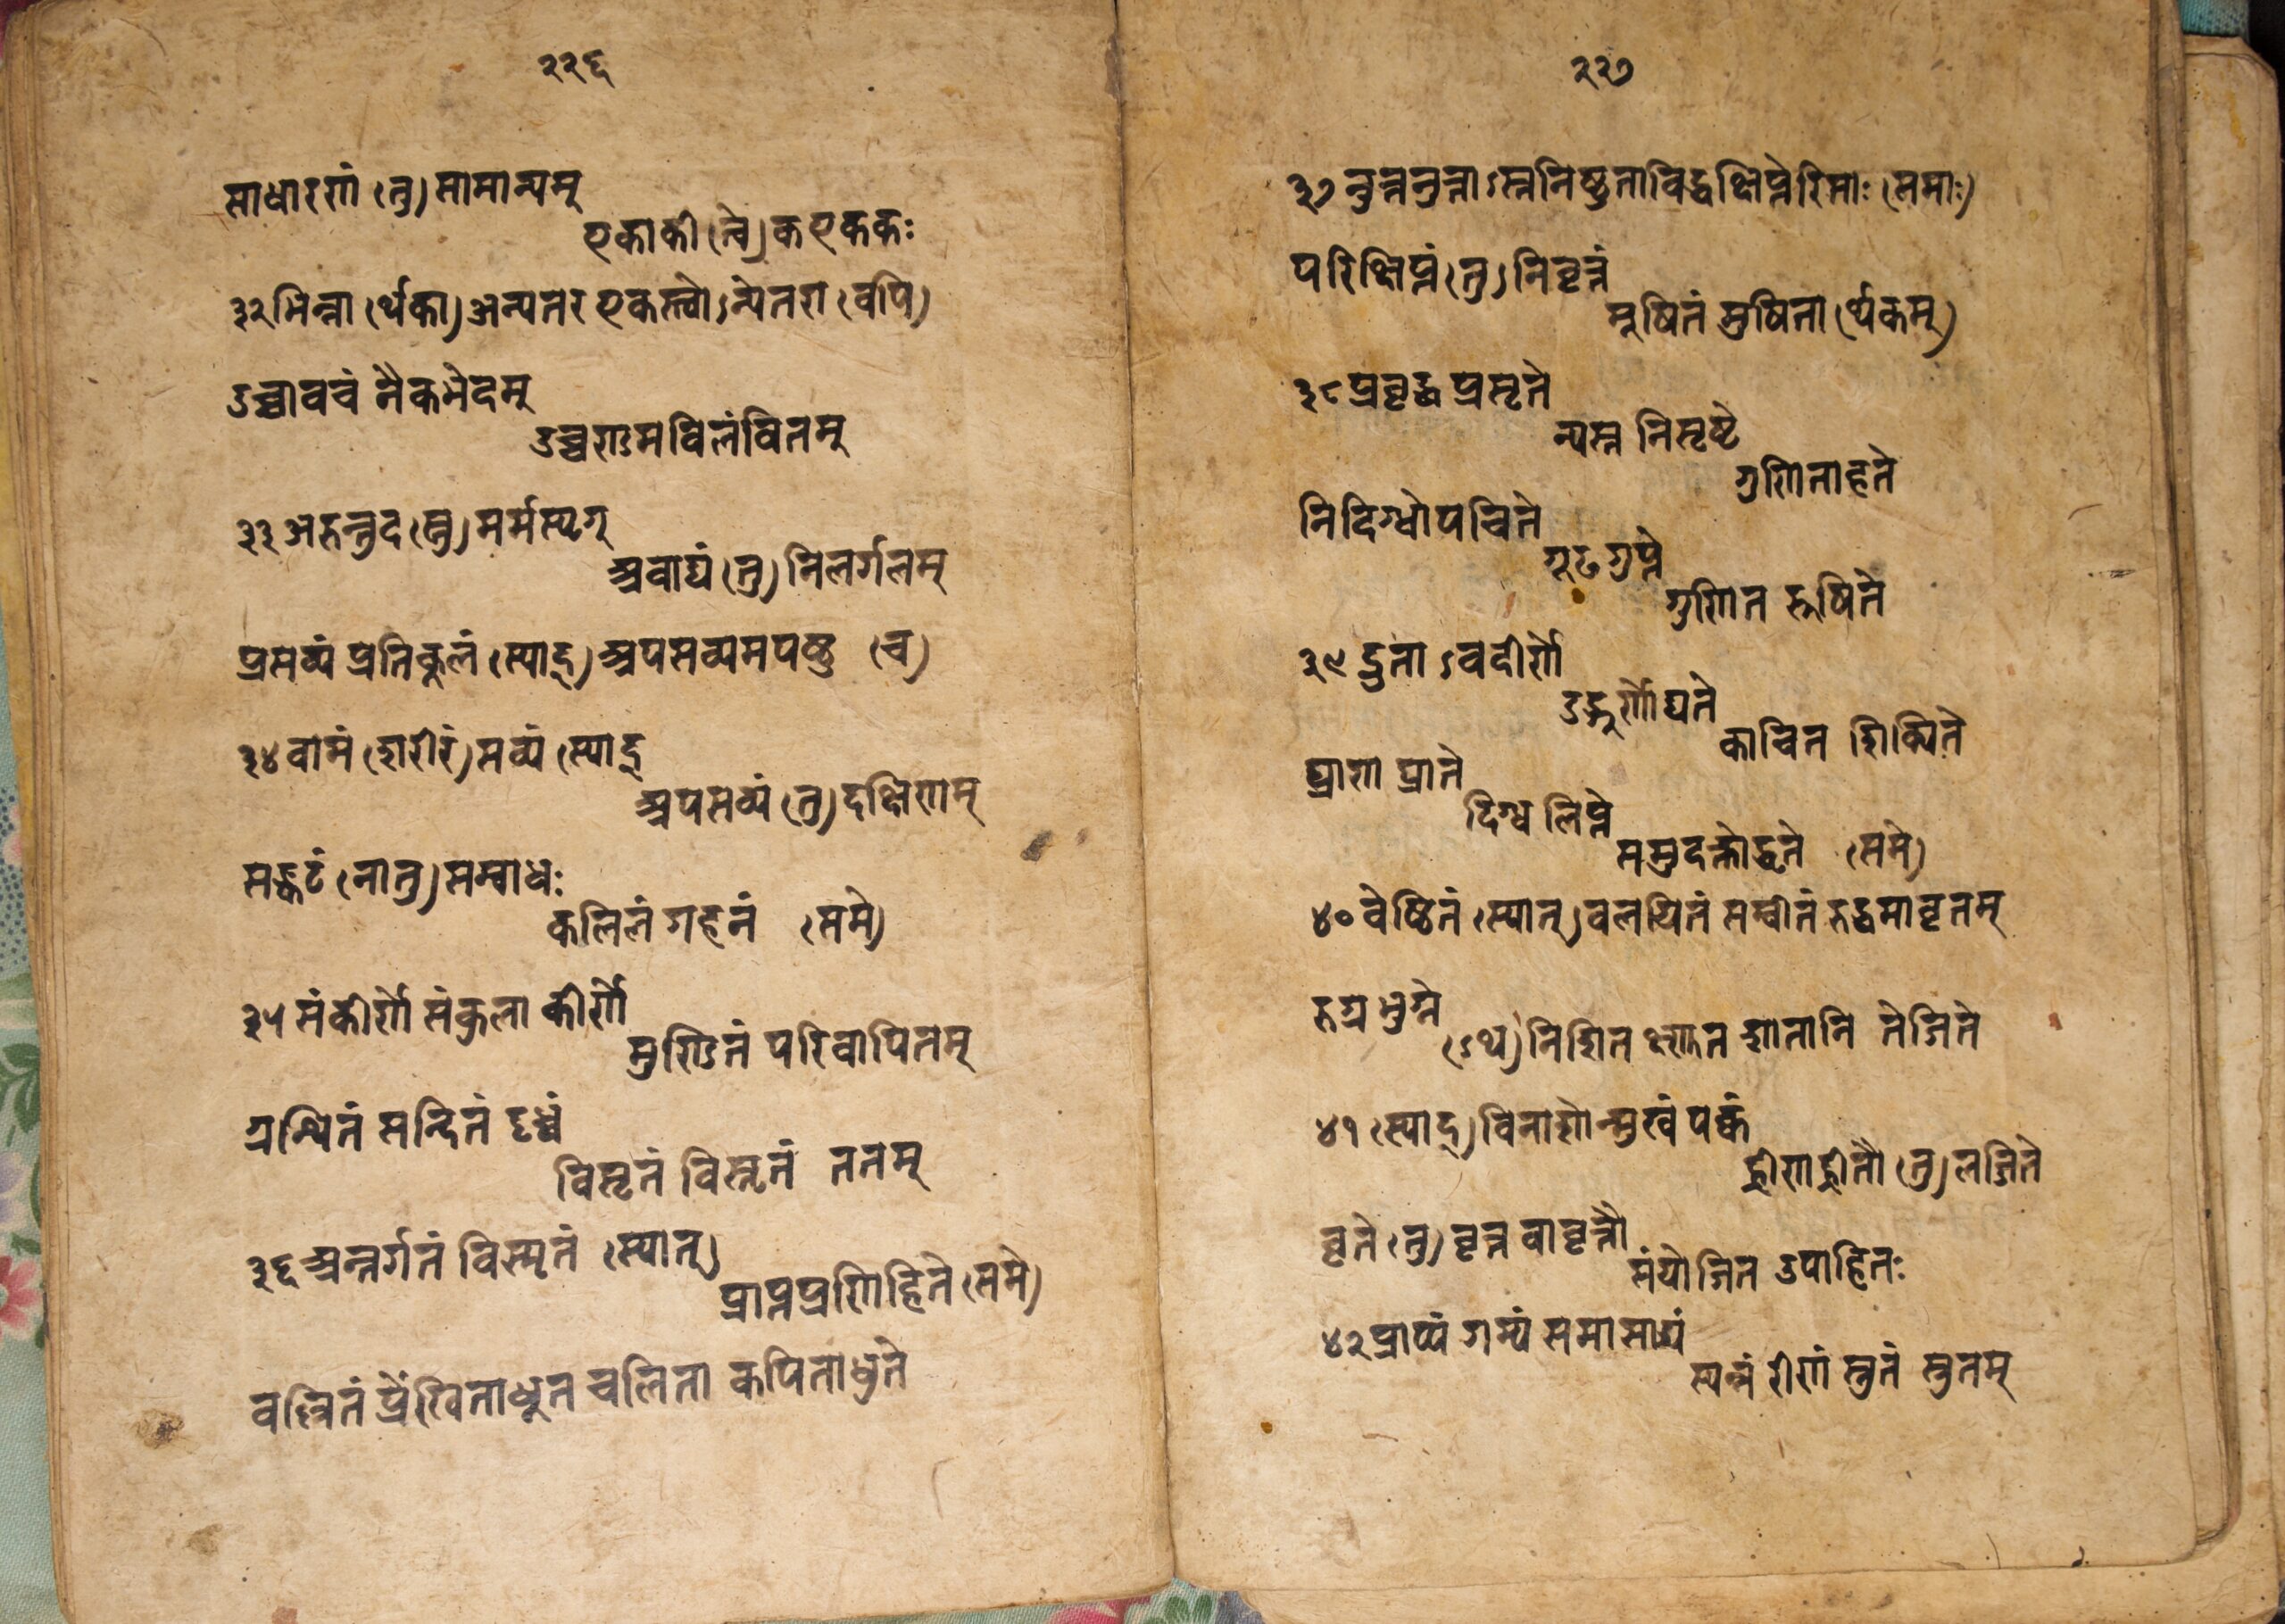 २२६
साधारणं (तु) सामान्यम्
एकाकी (त्वे) क एककः
३२ भिन्ना (र्थका) अन्यतर एकस्त्वोऽन्येतरा (वपि)
उच्चावचं नैकभेदम्
उच्चण्डमविलंवितम्
३३ अरुन्तुद (स्तु) मर्मस्पृग्
अवाद्यं (तु) निलर्गलम्
प्रसव्यं प्रतिकूलं (स्याद्) अपसव्यमपष्ठु (च)
३४ वामं (शरीरं) सव्यं (स्याद्
अपसव्यं (तु) दक्षिणम्
सङ्कटं (नातु) सम्वाधः
कलिलं गहनं (समे)
३५ संकीर्णे संकुला कीर्णे
मुण्डितं परिवापितम्
ग्रन्थितं सन्दितं दृब्धं
विसृतं विस्तृतं ततम्
३६ अन्तर्गतं विस्मृतं (स्यात्)
प्राप्तप्रणिहिते (समे)
वेल्लितं प्रेंखिताधूत चलिता कंपिताधुते
२२७
३७ नुन्ननुत्ताऽस्तनिष्ठुताविद्धक्षिप्तेरिताः (समाः)
परिक्षिप्तं (तु) निवृत्तं
मूषितं मुषिता (र्थकम्)
३८ प्रवृद्ध प्रसृते
न्यस्त निसृष्टे
गुणिताहते
निदिग्धोपचिते
गूढ गुप्ते
गुण्ठित रूषिते
३९ द्रुताऽवदीर्णे
उद्गुर्णोद्यते
काचित शिक्यिते
घ्राण घ्राते
दिग्ध लिप्ते
समुदक्तोद्धृते (समे)
४० वेष्टितं (स्यात्) वलयितं सम्वीतं रुद्धमावृतम्
रुग्न भुग्ने
(ऽथ) निशित क्ष्णुत शातानि तेजिते
४१ (स्याद्) विनाशोन्मुखं पक्वं
ह्रीणाह्रीतौ (तु) लज्जिते
वृते (तु) वृत्त वावृत्तौ
संयोजित उपाहितः
४२ प्राप्यं गम्यं समासाद्यं
स्यन्नं रीणं स्नुतं स्रुतम्